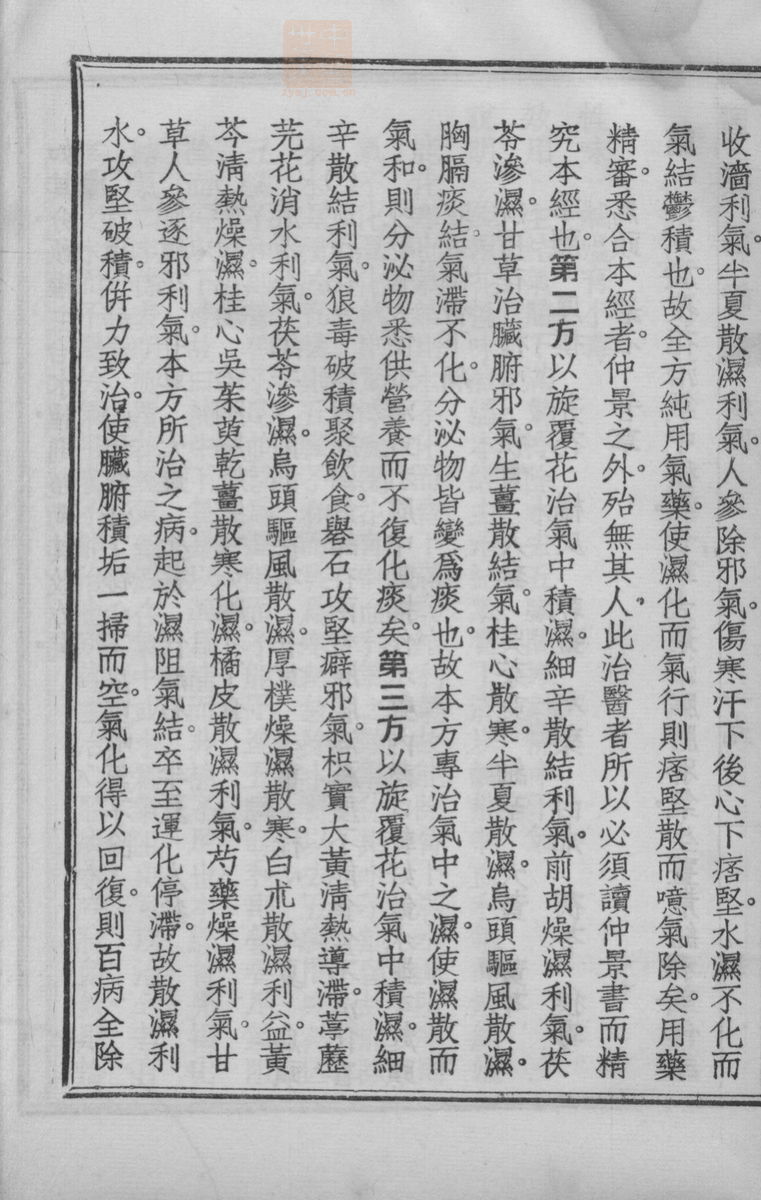 收濇利氣。半夏散濕利氣。人參除邪氣。傷寒汗下後心下痞堅。水濕不化而
氣結鬱積也。故全方純用氣藥。使濕化而氣行則痞堅散而噫氣除矣。用藥
精審。悉合本經者。仲景之外。殆無其人。此治醫者所以必須讀仲景書而精
究本經也。第二方以旋覆花治氣中積濕。細辛散結利氣。前胡燥濕利氣。茯
苓滲濕。甘草治臟腑邪氣。生薑散結氣。桂心散寒。半夏散濕。烏頭驅風散濕。
胸膈痰結。氣滯不化。分泌物皆變爲痰也。故本方專治氣中之濕。使濕散而
氣和。則分泌物悉供營養而不復化痰矣。第三方以旋覆花治氣中積濕。細
辛散結利氣。狼毒破積聚飲食。礜石攻堅癖邪氣。枳實大黃淸熱導滯。葶藶
芫花消水利氣。茯苓滲濕。烏頭驅風散濕。厚樸燥濕散寒。白朮散濕利益。黃
芩淸熱燥濕。桂心吳茱萸乾薑散寒化濕。橘皮散濕利氣。芍藥燥濕利氣。甘
草人參逐邪利氣。本方所治之病。起於濕阻氣結。卒至運化停滯。故散濕利
水。攻堅破積。倂力致治。使臟腑積垢一掃而空。氣化得以回復。則百病全除